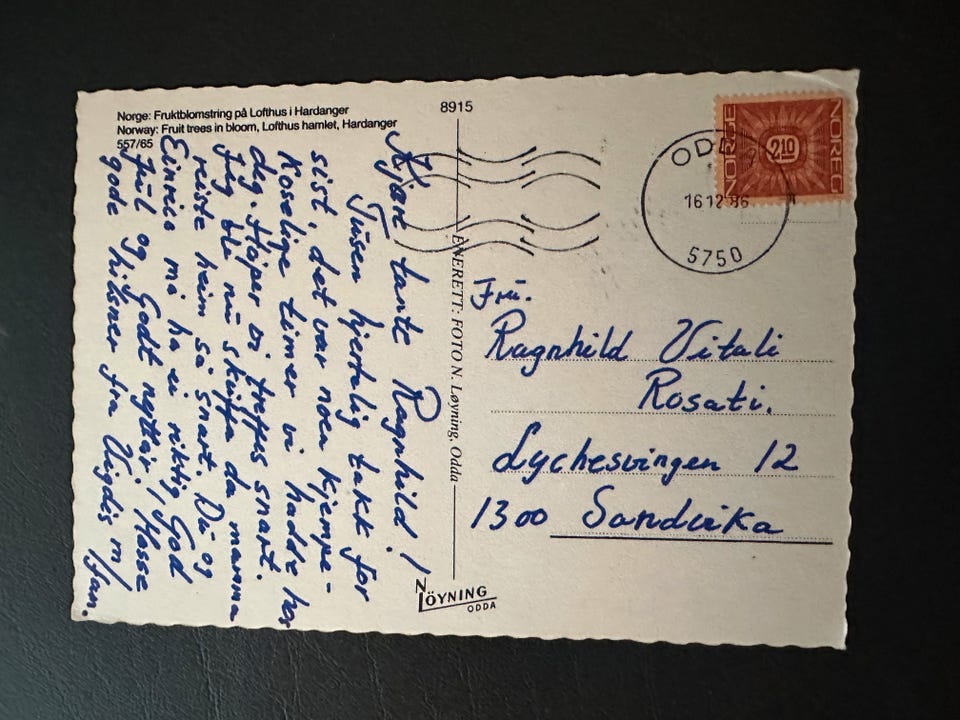 Norge: Fruktblomstring på Lofthus i Hardanger
Norway: Fruit trees in bloom, Lofthus hamlet, Hardanger
557/65
8915
Kjære tante Ragnhild!
Tusen hjertelig takk for
sist, det var noen kjempe-
koselige timer vi hadde hos
deg. Håper vi treffes snart.
Jeg ble nå skuffa da mamma
reiste heim så snart. Du og
må ha ei riktig God
Jul og Godt nyttår, Masse
gode hilsner fra Vigdis m/Jan.
ENERETT: FOTO N. Løyning, Odda
NLÖYNING
ODDA
NORGE
2.10
NOREG
ODDA
16 12 86
5750
Fru.
Ragnhild Vitali
Rosati.
Lychesvingen 12
1300 Sandvika